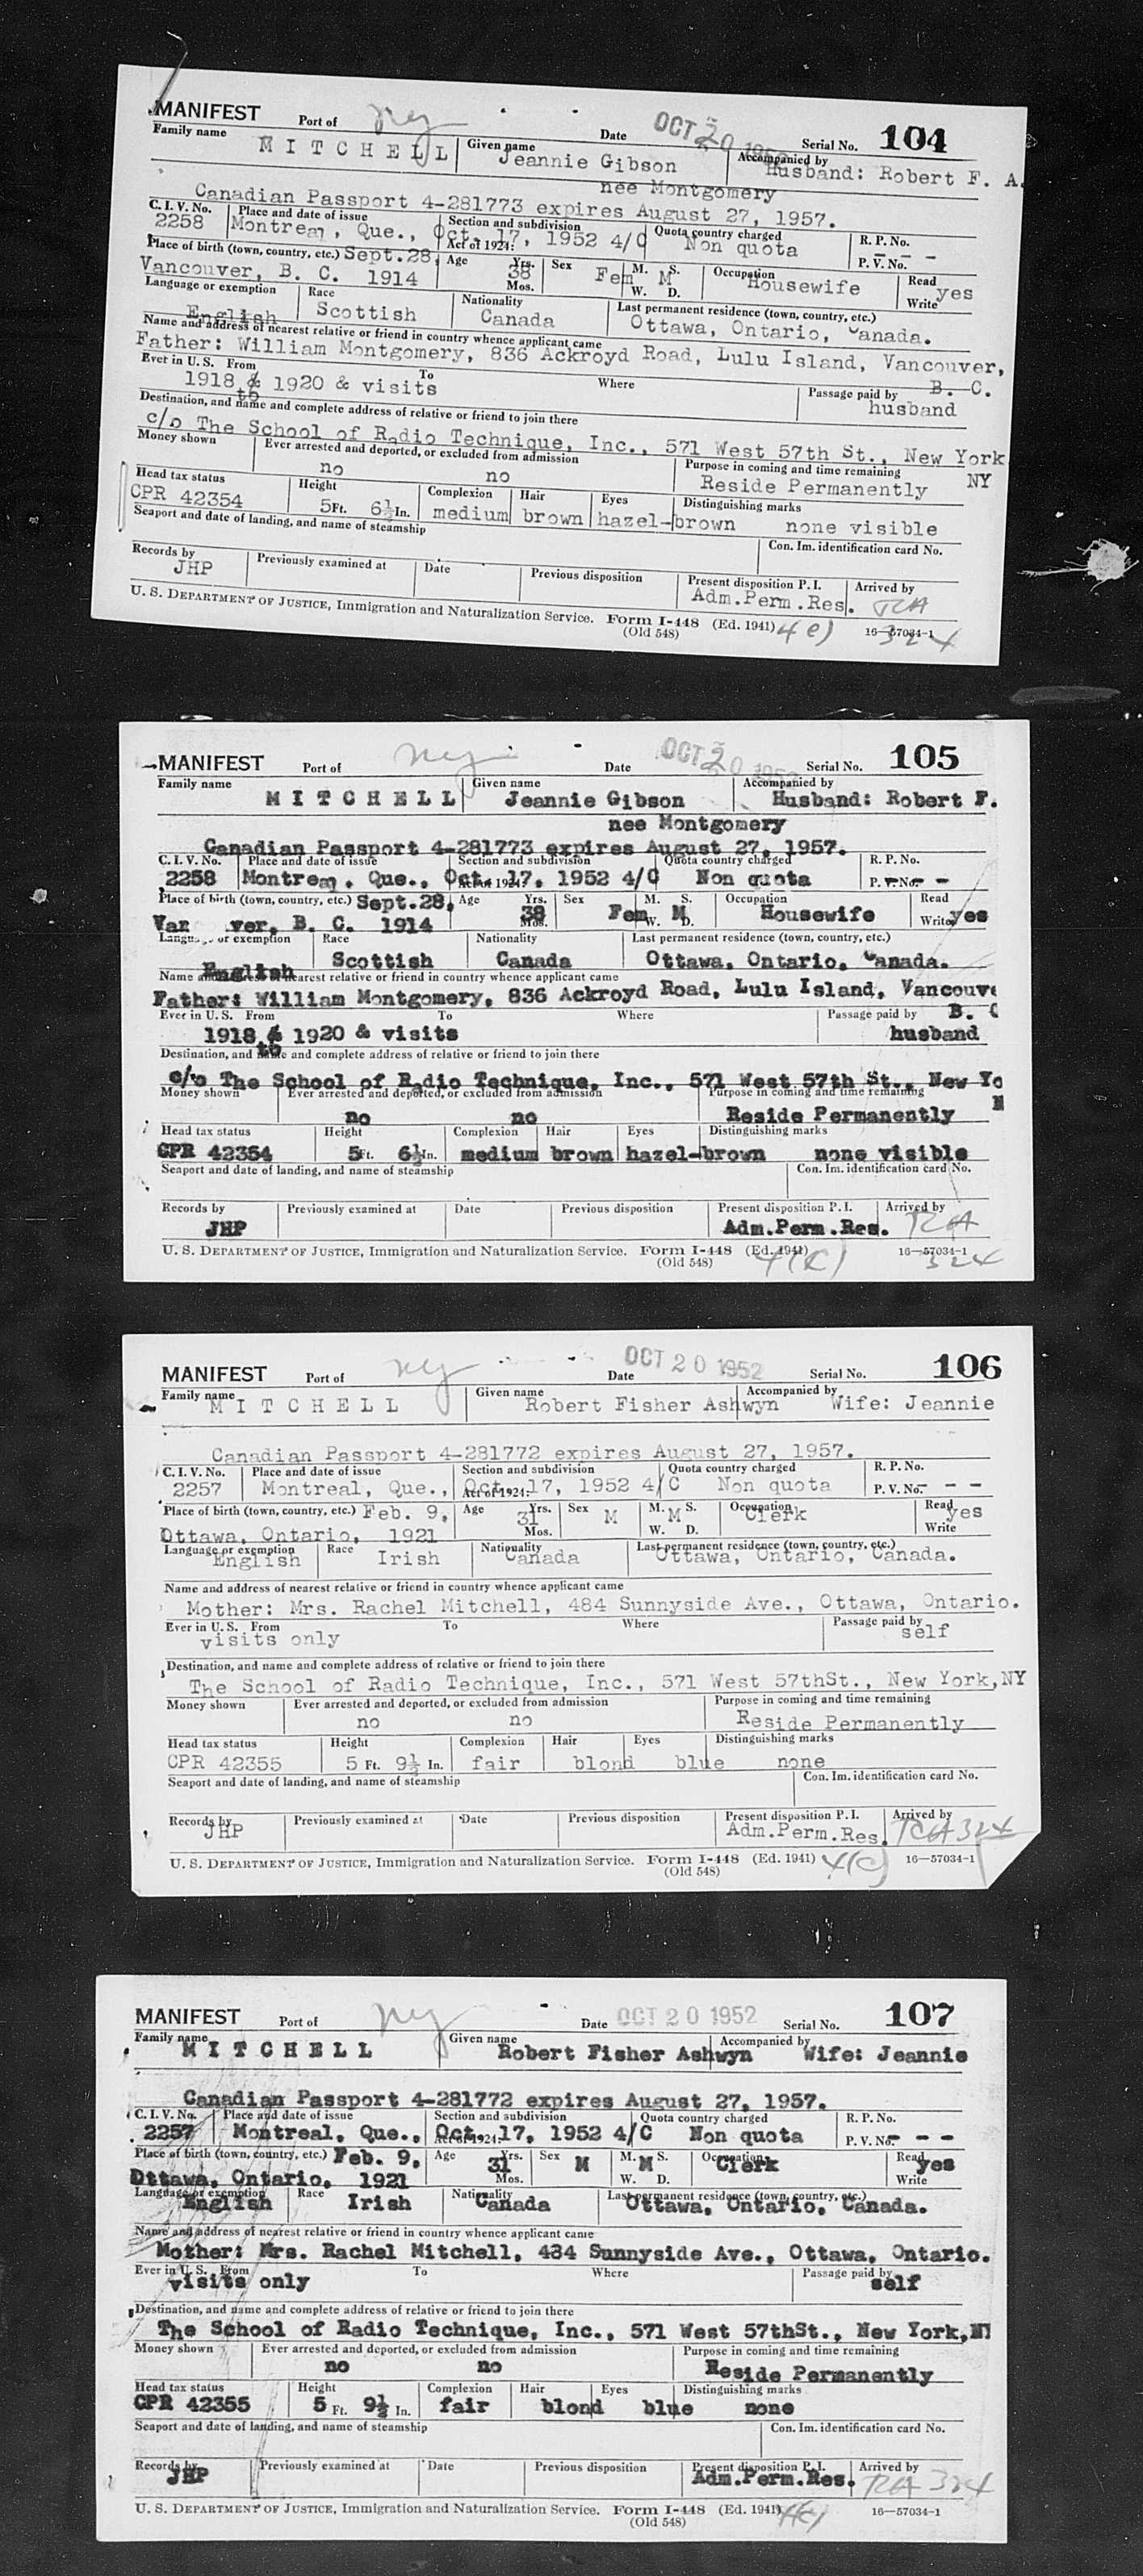 MANIFEST Port of ny Date OCT 20 1952 Serial No. 104
Family name MITCHELL Given name Jeannie Gibson Accompanied by Husband: Robert F. A.
nee Montgomery
Canadian Passport 4-281773 expires August 27, 1957.
C. I. V. No. Place and date of issue Section and subdivision Quota country charged R. P. No.
2258 Montreal, Que., Oct. 17, 1952 4/C Act of 1924: Non quota P. V. No. - - -
Place of birth (town, country, etc.) Sept.28, Age Yrs. Sex M. S. Occupation Read
Vancouver, B. C. 1914 38 Mos. Fem W. M D. Housewife Write yes
Language or exemption Race Nationality Last permanent residence (town, country, etc.)
English Scottish Canada Ottawa, Ontario, Canada.
Name and address of nearest relative or friend in country whence applicant came
Father: William Montgomery, 836 Ackroyd Road, Lulu Island, Vancouver,
Ever in U. S. From To Where Passage paid by B. C.
1918 & to 1920 & visits husband
Destination, and name and complete address of relative or friend to join there
c/o The School of Radio Technique, Inc., 571 West 57th St., New York
Money shown Ever arrested and deported, or excluded from admission Purpose in coming and time remaining NY
no no Reside Permanently
Head tax status Height Complexion Hair Eyes Distinguishing marks
CPR 42354 5 Ft. 6½ In. medium brown hazel-brown none visible
Seaport and date of landing, and name of steamship Con. Im. identification card No.
Records by Previously examined at Date Previous disposition Present disposition P. I. Arrived by
JHP Adm.Perm.Res. TCA
U. S. DEPARTMENT OF JUSTICE, Immigration and Naturalization Service. Form I-448 (Ed. 1941) 4(c) 16—57034-1
(Old 548) 324
MANIFEST Port of ny Date OCT 20 1952 Serial No. 105
Family name MITCHELL Given name Jeannie Gibson Accompanied by Husband: Robert F.
nee Montgomery
Canadian Passport 4-281773 expires August 27, 1957.
C. I. V. No. Place and date of issue Section and subdivision Quota country charged R. P. No.
2258 Montreal, Que., Oct. 17, 1952 4/C Act of 1924: Non quota P. V. No. - -
Place of birth (town, country, etc.) Sept.28, Age Yrs. Sex M. S. Occupation Read
Van ver, B. C. 1914 38 Mos. Fem W. M D. Housewife Write yes
Language or exemption Race Nationality Last permanent residence (town, country, etc.)
English Scottish Canada Ottawa, Ontario, Canada.
Name and address of nearest relative or friend in country whence applicant came
Father: William Montgomery, 836 Ackroyd Road, Lulu Island, Vancouve
Ever in U. S. From To Where Passage paid by B. C
1918 & to 1920 & visits husband
Destination, and name and complete address of relative or friend to join there
c/o The School of Radio Technique, Inc., 571 West 57th St., New Yo
Money shown Ever arrested and deported, or excluded from admission Purpose in coming and time remaining N
no no Reside Permanently
Head tax status Height Complexion Hair Eyes Distinguishing marks
CPR 42354 5 Ft. 6½ In. medium brown hazel-brown none visible
Seaport and date of landing, and name of steamship Con. Im. identification card No.
Records by Previously examined at Date Previous disposition Present disposition P. I. Arrived by
JHP Adm.Perm.Res. TCA
U. S. DEPARTMENT OF JUSTICE, Immigration and Naturalization Service. Form I-448 (Ed. 1941) 4(c) 16—57034-1
(Old 548) 324
MANIFEST Port of ny Date OCT 20 1952 Serial No. 106
Family name MITCHELL Given name Robert Fisher Ashwyn Accompanied by Wife: Jeannie
Canadian Passport 4-281772 expires August 27, 1957.
C. I. V. No. Place and date of issue Section and subdivision Quota country charged R. P. No.
2257 Montreal, Que., Oct. 17, 1952 4/C Act of 1924: Non quota P. V. No. - - -
Place of birth (town, country, etc.) Feb. 9, Age Yrs. Sex M. S. Occupation Read
Ottawa, Ontario, 1921 31 Mos. M W. M D. Clerk Write yes
Language or exemption Race Nationality Last permanent residence (town, country, etc.)
English Irish Canada Ottawa, Ontario, Canada.
Name and address of nearest relative or friend in country whence applicant came
Mother: Mrs. Rachel Mitchell, 484 Sunnyside Ave., Ottawa, Ontario.
Ever in U. S. From To Where Passage paid by
visits only self
Destination, and name and complete address of relative or friend to join there
The School of Radio Technique, Inc., 571 West 57thSt., New York,NY
Money shown Ever arrested and deported, or excluded from admission Purpose in coming and time remaining
no no Reside Permanently
Head tax status Height Complexion Hair Eyes Distinguishing marks
CPR 42355 5 Ft. 9½ In. fair blond blue none
Seaport and date of landing, and name of steamship Con. Im. identification card No.
Records by Previously examined at Date Previous disposition Present disposition P. I. Arrived by
JHP Adm.Perm.Res. TCA 324
U. S. DEPARTMENT OF JUSTICE, Immigration and Naturalization Service. Form I-448 (Ed. 1941) 4(c) 16—57034-1
(Old 548)
MANIFEST Port of ny Date OCT 20 1952 Serial No. 107
Family name MITCHELL Given name Robert Fisher Ashwyn Accompanied by Wife: Jeannie
Canadian Passport 4-281772 expires August 27, 1957.
C. I. V. No. Place and date of issue Section and subdivision Quota country charged R. P. No.
2257 Montreal, Que., Oct. 17, 1952 4/C Act of 1924: Non quota P. V. No. - - -
Place of birth (town, country, etc.) Feb. 9, Age Yrs. Sex M. S. Occupation Read
Ottawa, Ontario, 1921 31 Mos. M W. M D. Clerk Write yes
Language or exemption Race Nationality Last permanent residence (town, country, etc.)
English Irish Canada Ottawa, Ontario, Canada.
Name and address of nearest relative or friend in country whence applicant came
Mother: Mrs. Rachel Mitchell, 484 Sunnyside Ave., Ottawa, Ontario.
Ever in U. S. From To Where Passage paid by
visits only self
Destination, and name and complete address of relative or friend to join there
The School of Radio Technique, Inc., 571 West 57thSt., New York,NY
Money shown Ever arrested and deported, or excluded from admission Purpose in coming and time remaining
no no Reside Permanently
Head tax status Height Complexion Hair Eyes Distinguishing marks
CPR 42355 5 Ft. 9½ In. fair blond blue none
Seaport and date of landing, and name of steamship Con. Im. identification card No.
Records by Previously examined at Date Previous disposition Present disposition P. I. Arrived by
JHP Adm.Perm.Res. TCA 324
U. S. DEPARTMENT OF JUSTICE, Immigration and Naturalization Service. Form I-448 (Ed. 1941) 4(c) 16—57034-1
(Old 548)